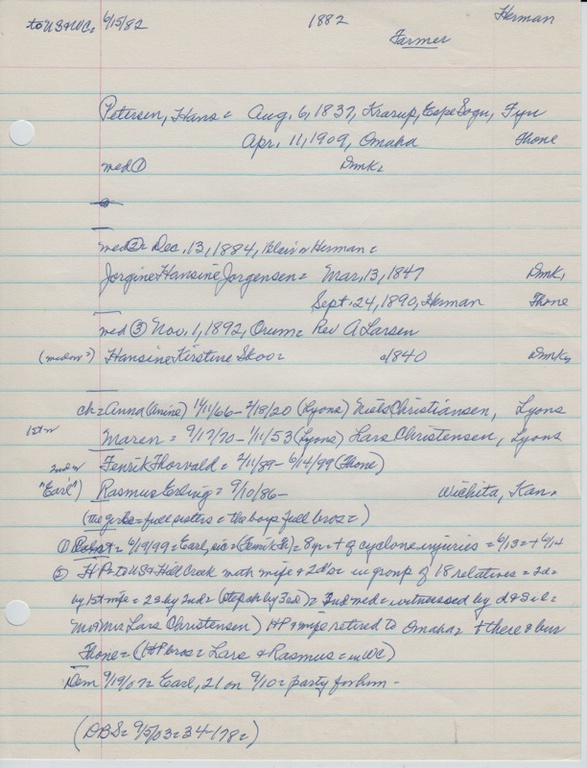 to US & WC= 6/15/82 1882 Herman
Farmer
Petersen, Hans = Aug. 6, 1837, Krarup, Espe Sogn, Fyn
Apr. 11, 1909, Omaha Thone
med ① Dmk=
med ② = Dec. 13, 1884, Blair or Herman =
Jorgine Hansine Jorgensen = Mar. 13, 1847 Dmk,
Sept. 24, 1890, Herman Thone
med ③ Nov. 1, 1892, Orum = Rev A Larsen
Hansine Kirstine Skov = 1840 Dmk
ch = Anna (Anine) 11/11/66 - 2/18/20 (Lyons) Niels Christiansen, Lyons
1st w Maren = 9/17/70 - 1/11/53 (Lyons) Lars Christensen, Lyons
2nd w Fenrik Thorvald = 2/11/89 - 6/14/99 (Thone)
"Earl") Rasmus Erling = 9/10/86 - Wichita, Kan.
(the girls = full sisters = the boys full bros =)
① = 6/19/99 = Earl, = 8 yr = + of cyclone injuries = 6/13 = + 6/14
② HP to US & Hill Creek with wife & 2 ds = in group of 18 relatives = 2 d =
by 1st wife = 2 s by 2nd = = 3rd med = witnessed by d & s il =
Mr & Mrs Lars Christensen) HP & wife retired to Omaha = + there & bur
Thone = (HP bros = Lars & Rasmus = in WC)
Dem 9/19/07 = Earl, 21 on 9/10 = party for him -
(DBS = 9/5/03 = 34-178 =)